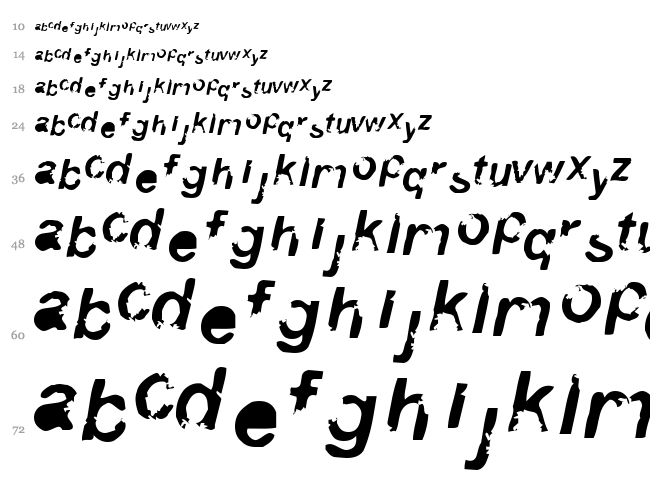 10 abcdefghijklmopqrstuvwxyz
14 abcdefghijklmopqrstuvwxyz
18 abcdefghijklmopqrstuvwxyz
24 abcdefghijklmopqrstuvwxyz
36 abcdefghijklmopqrstuvwxyz
48 abcdefghijklmopqrstu
60 abcdefghijklmop
72 abcdefghijklm